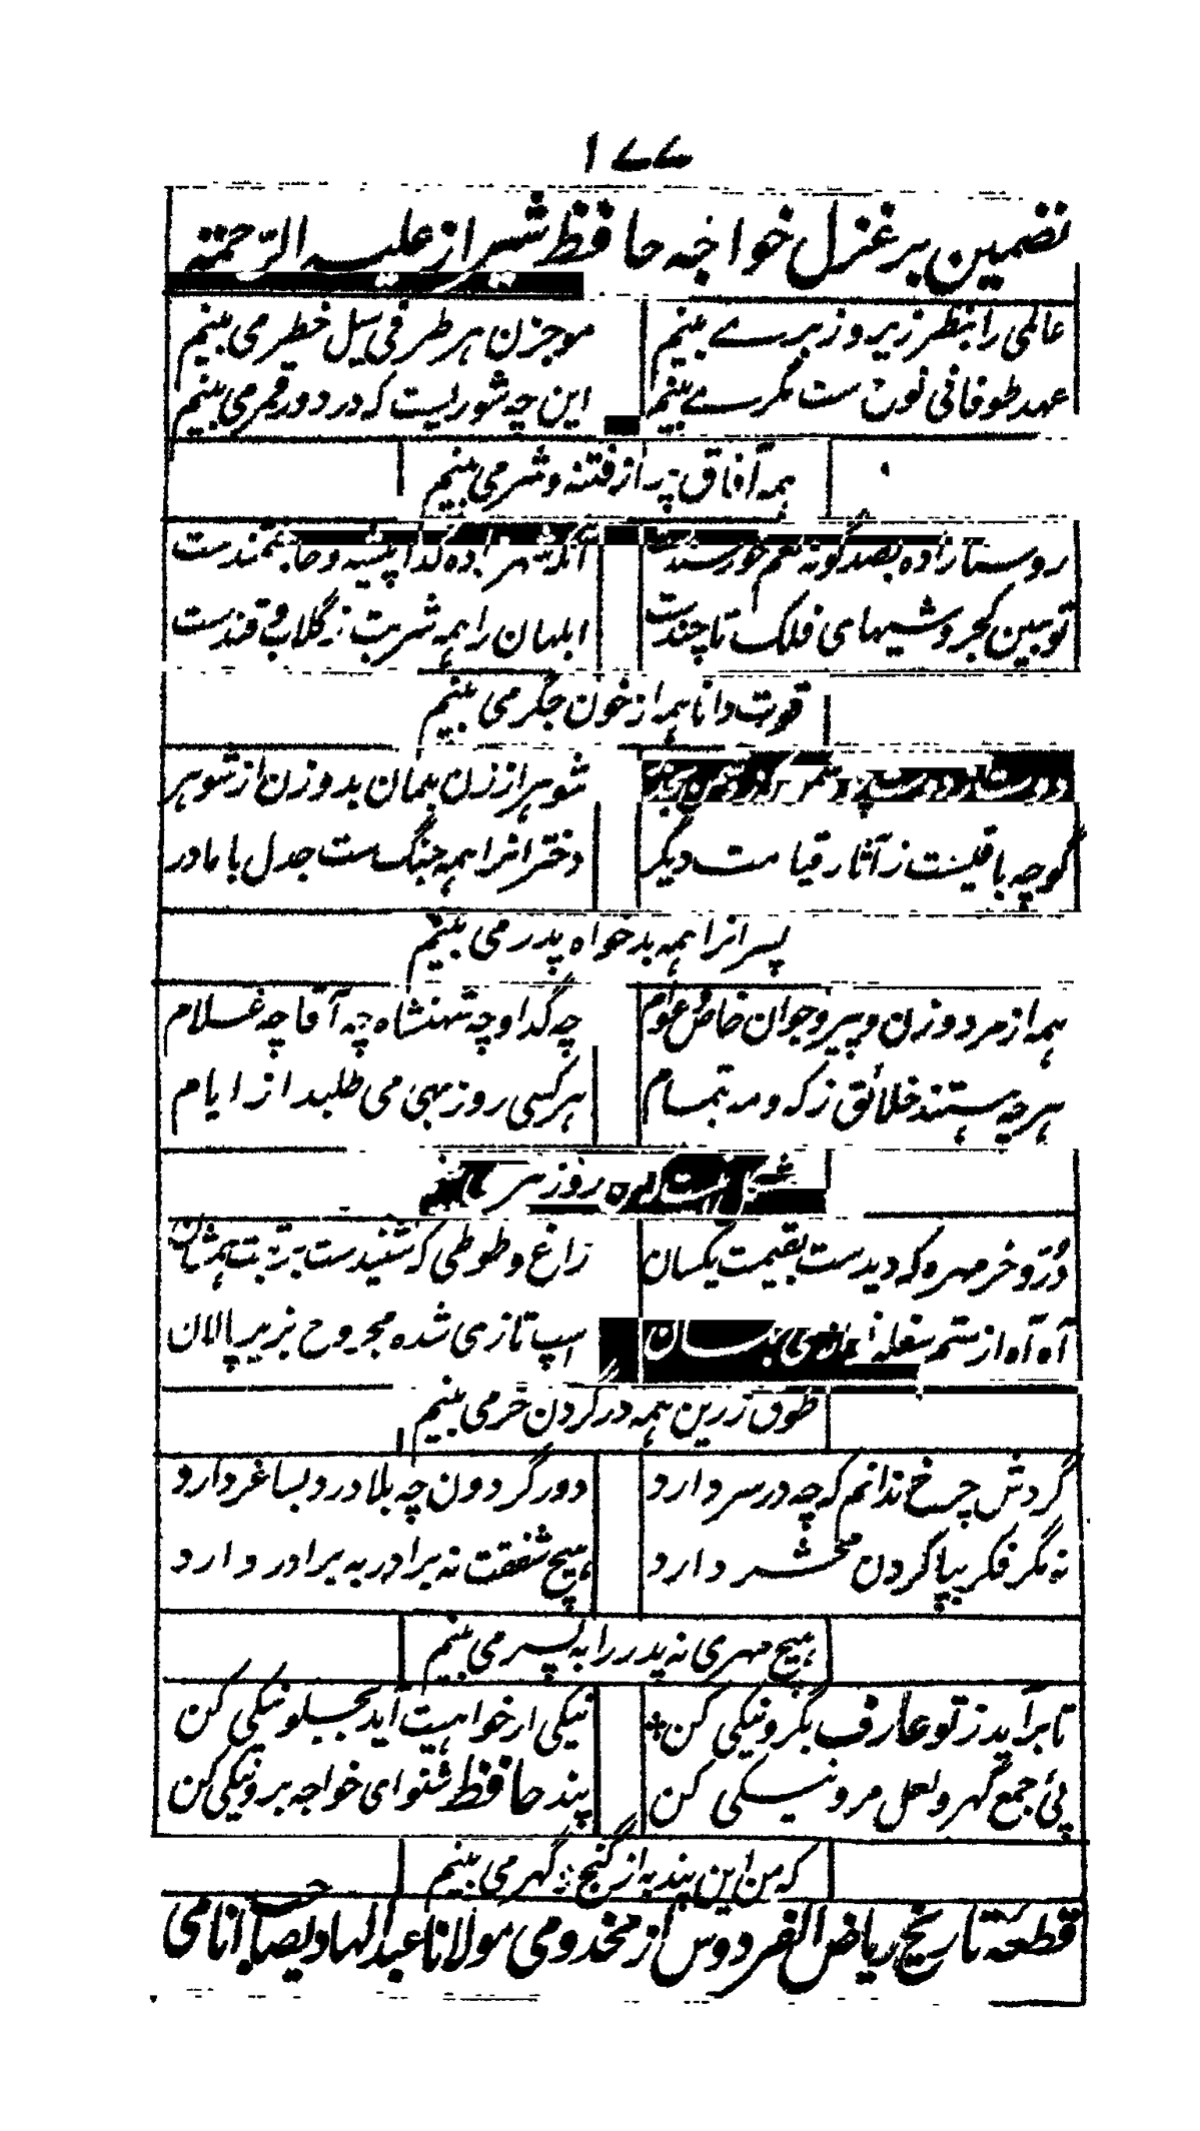 ۱۷۷
تضمین بر غزل خواجه حافظ شیراز علیه الرحمته
عالمی را بنظر زیر و زبرے بینم موجزن هر طرفی سیل خطر می بینم
عهد طوفانی نوح ست مگرے بینم این چه شوریست که در دور قمر می بینم
همه آفاق پر از فتنه و شر می بینم
روستا زاده بصد گونه نعم خورسندست آنکه شهر زاده گدا پیشه و حاجتمندست
تو ببین کجروشیهای فلک تا چندست ابلهان را همه شربت ز گلاب و قندست
قوت دانا همه از خون جگر می بینم
شوهر از زن بگمان بد و زن از شوهر
گو چه باقیست ز آثار قیامت دیگر دختر انرا همه جنگ ست جدل با مادر
پسرانرا همه بدخواه پدر می بینم
همه از مرد و زن و پیر و جوان خاص و عوام چه گدا و چه شهنشاه چه آقا چه غلام
هر چه هستند خلائق ز که و مه بتمام هر کسی روز بهی می طلبد از ایام
روز
درّ و خرمهره که دیدست بقیمت یکسان زاغ و طوطی که شنیدست برتبت همشان
آه آه از ستم سفله اسپ تازی شده مجروح بزیر پالان
طوق زرین همه در گردن خر می بینم
گردش چرخ ندانم که چه در سر دارد دور گردون چه بلا درد بساغر دارد
نه مگر فکر بپا کردن محشر دارد هیچ شفقت نه برادر به برادر دارد
هیچ مهری نه پدر را به پسر می بینم
تا برآید ز تو عارف بگرو نیکی کن نیکی ار خواهیت آید بجلو نیکی کن
پئ جمع گهر و لعل مرو نیکی کن پند حافظ شنو ای خواجه برو نیکی کن
که من این پند به از گنج گهر می بینم
قطعه تاریخ ریاض الفردوس از مخدومی مولانا عبدالهادیصاحب انامی